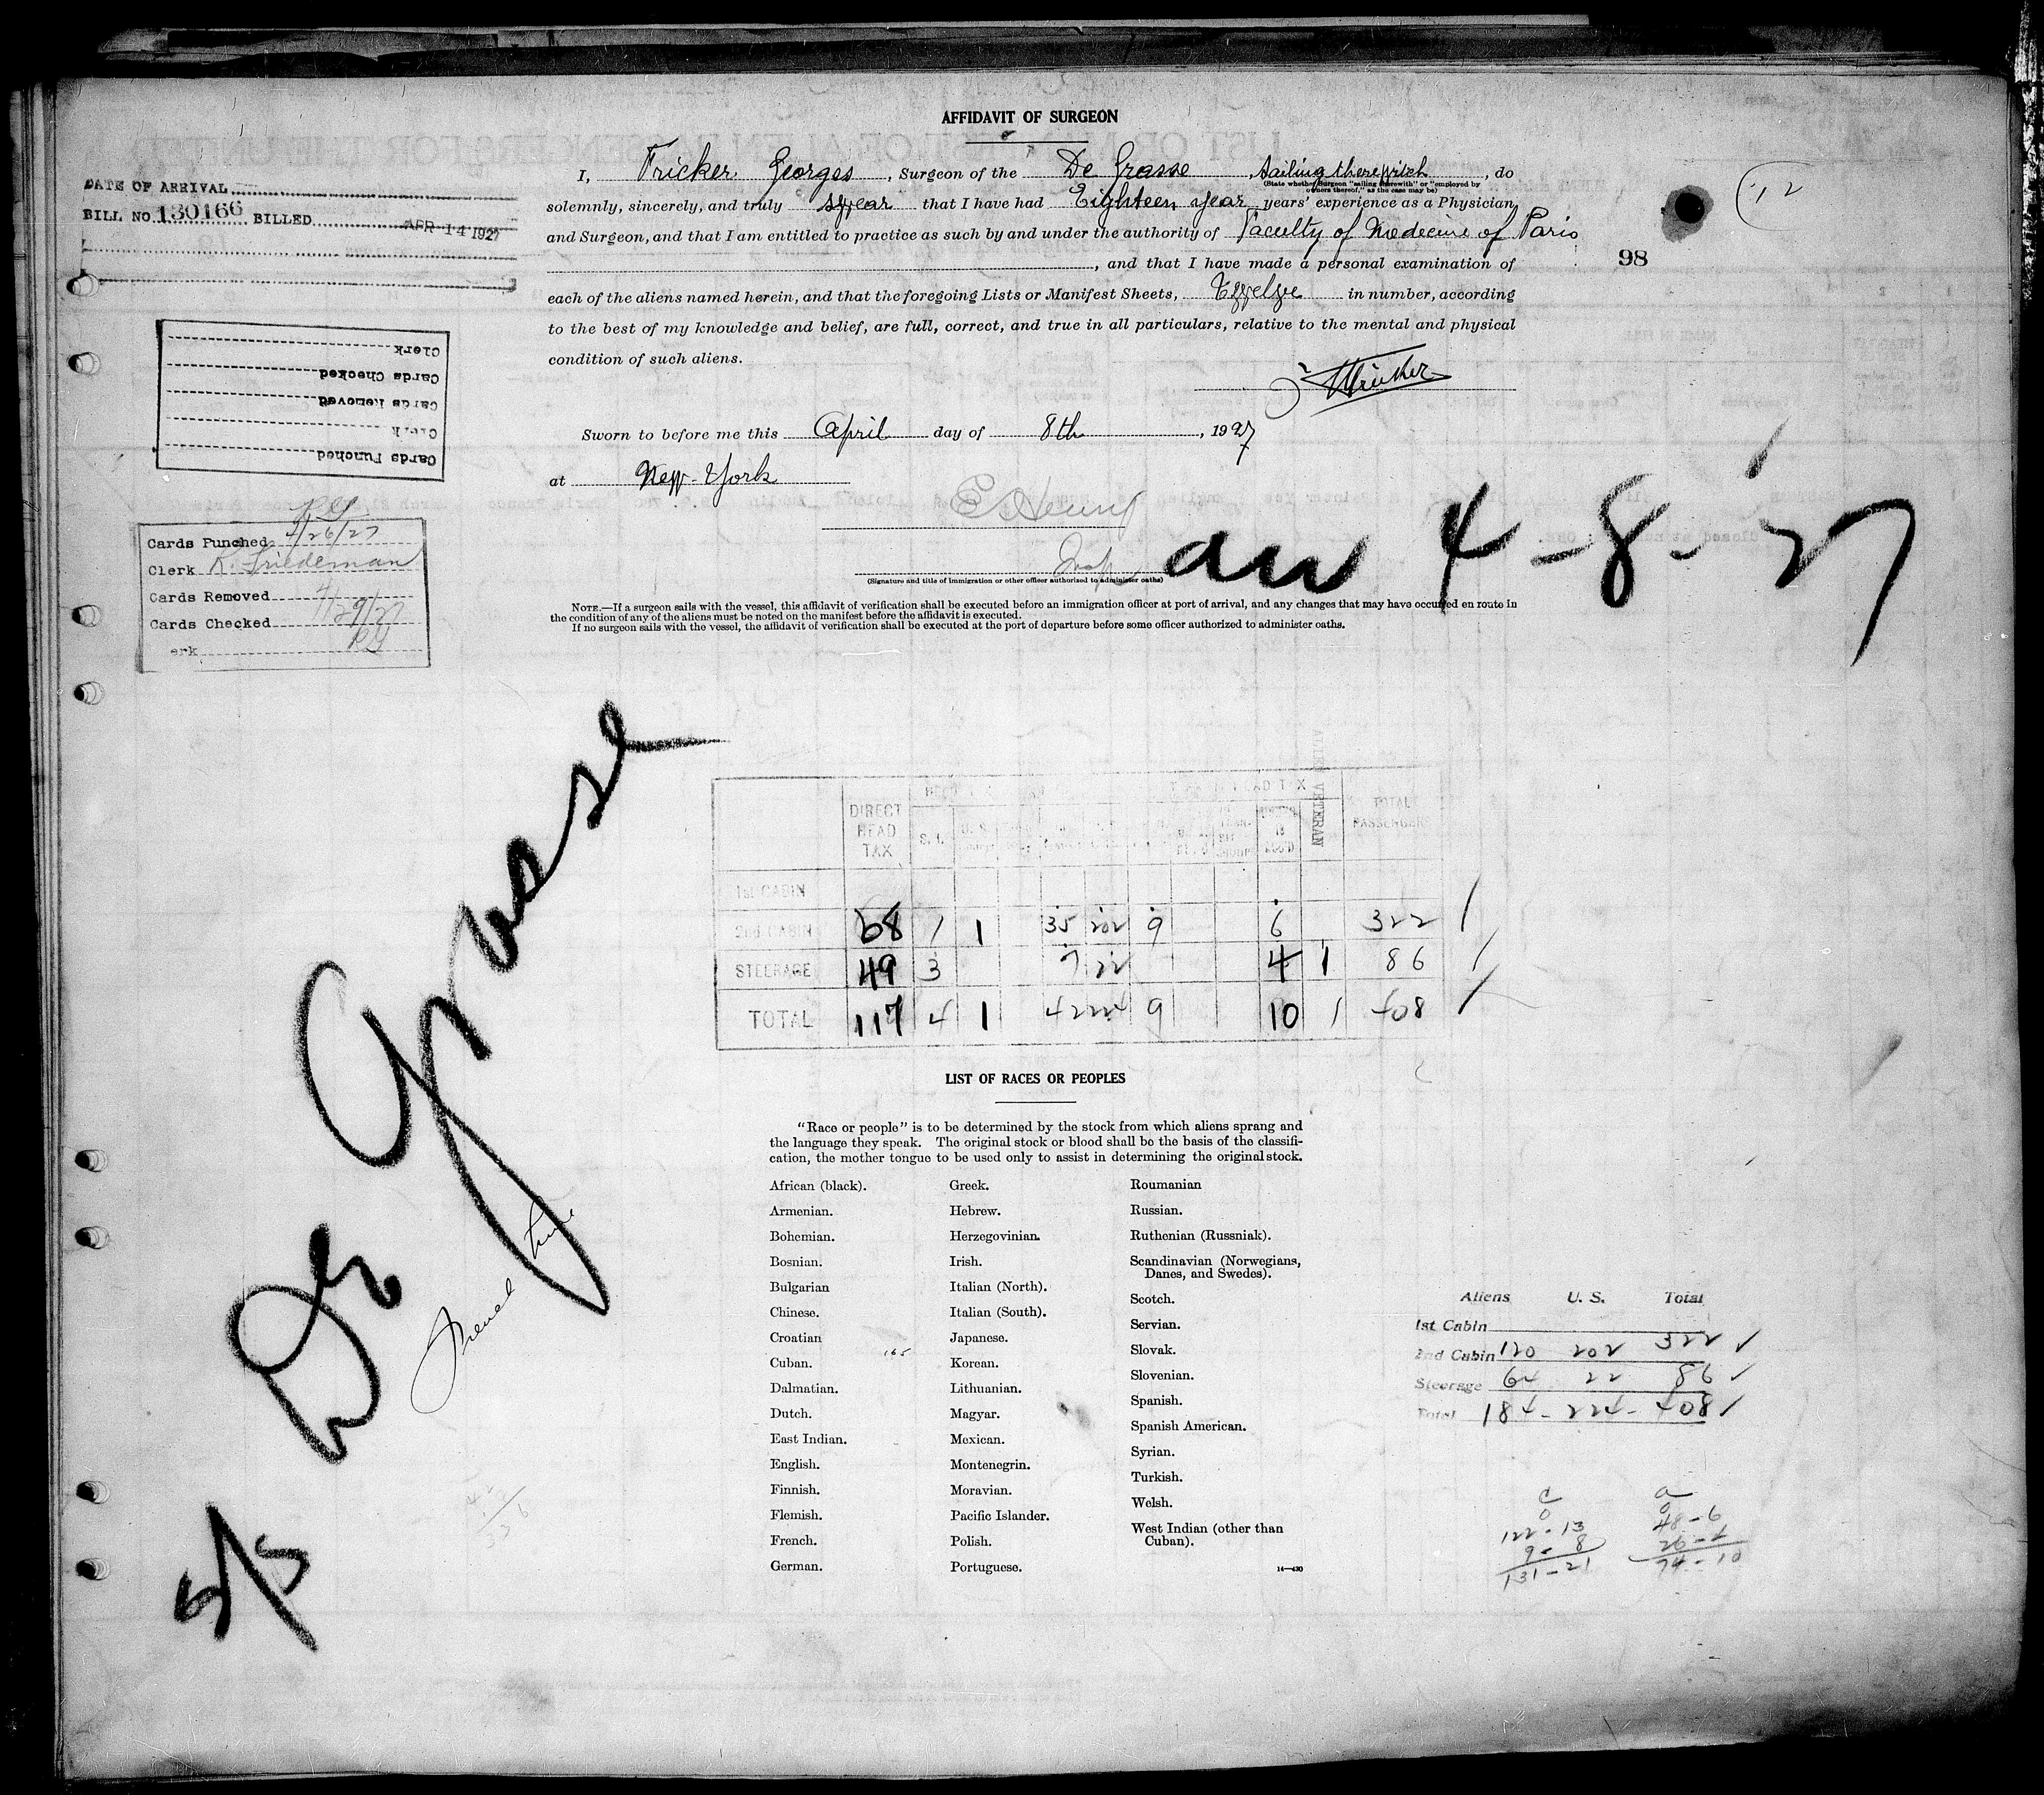 AFFIDAVIT OF SURGEON
I, Fricker Georges, Surgeon of the De Grasse sailing therewith, do
(State whether Surgeon "sailing therewith" or "employed by
owners thereof," as the case may be)
solemnly, sincerely, and truly swear that I have had Eighteen year years' experience as a Physician
and Surgeon, and that I am entitled to practice as such by and under the authority of Faculty of Medecine of Paris
, and that I have made a personal examination of
each of the aliens named herein, and that the foregoing Lists or Manifest Sheets, Twelve in number, according
to the best of my knowledge and belief, are full, correct, and true in all particulars, relative to the mental and physical
condition of such aliens.
Fricker
Sworn to before me this April day of 8th, 1927
at New-York
Insp
(Signature and title of immigration or other officer authorized to administer oaths)
NOTE.—If a surgeon sails with the vessel, this affidavit of verification shall be executed before an immigration officer at port of arrival, and any changes that may have occurred en route in
the condition of any of the aliens must be noted on the manifest before the affidavit is executed.
If no surgeon sails with the vessel, the affidavit of verification shall be executed at the port of departure before some officer authorized to administer oaths.
12
98
DATE OF ARRIVAL
BILL NO. 130166 BILLED APR 14 1927
Clerk
Cards Checked
Cards Removed
Clerk
Cards Punched
Cards Punched 4/26/27
Clerk R. Friedeman
Cards Removed
Cards Checked 4/29/27
erk
arr 4-8-'27
S/S De Grasse
French Line
DIRECT HEAD TAX S.I. VETERAN TOTAL PASSENGERS
1st CABIN
2nd CABIN 68 1 1 35 202 9 6 322
STEERAGE 49 3 7 22 4 1 86
TOTAL 117 4 1 42 224 9 10 1 408
LIST OF RACES OR PEOPLES
"Race or people" is to be determined by the stock from which aliens sprang and
the language they speak. The original stock or blood shall be the basis of the classifi-
cation, the mother tongue to be used only to assist in determining the original stock.
African (black).
Armenian.
Bohemian.
Bosnian.
Bulgarian
Chinese.
Croatian
Cuban.
Dalmatian.
Dutch.
East Indian.
English.
Finnish.
Flemish.
French.
German.
Greek.
Hebrew.
Herzegovinian.
Irish.
Italian (North).
Italian (South).
Japanese.
Korean.
Lithuanian.
Magyar.
Mexican.
Montenegrin.
Moravian.
Pacific Islander.
Polish.
Portuguese.
Roumanian
Russian.
Ruthenian (Russniak).
Scandinavian (Norwegians,
Danes, and Swedes).
Scotch.
Servian.
Slovak.
Slovenian.
Spanish.
Spanish American.
Syrian.
Turkish.
Welsh.
West Indian (other than
Cuban).
14—430
165
Aliens U. S. Total
1st Cabin
2nd Cabin 120 202 322
Steerage 64 22 86
Total 184 - 224 - 408
c
0
122 - 13
9 - 8
131 - 21
a
0
48 - 6
26 - 4
74 - 10